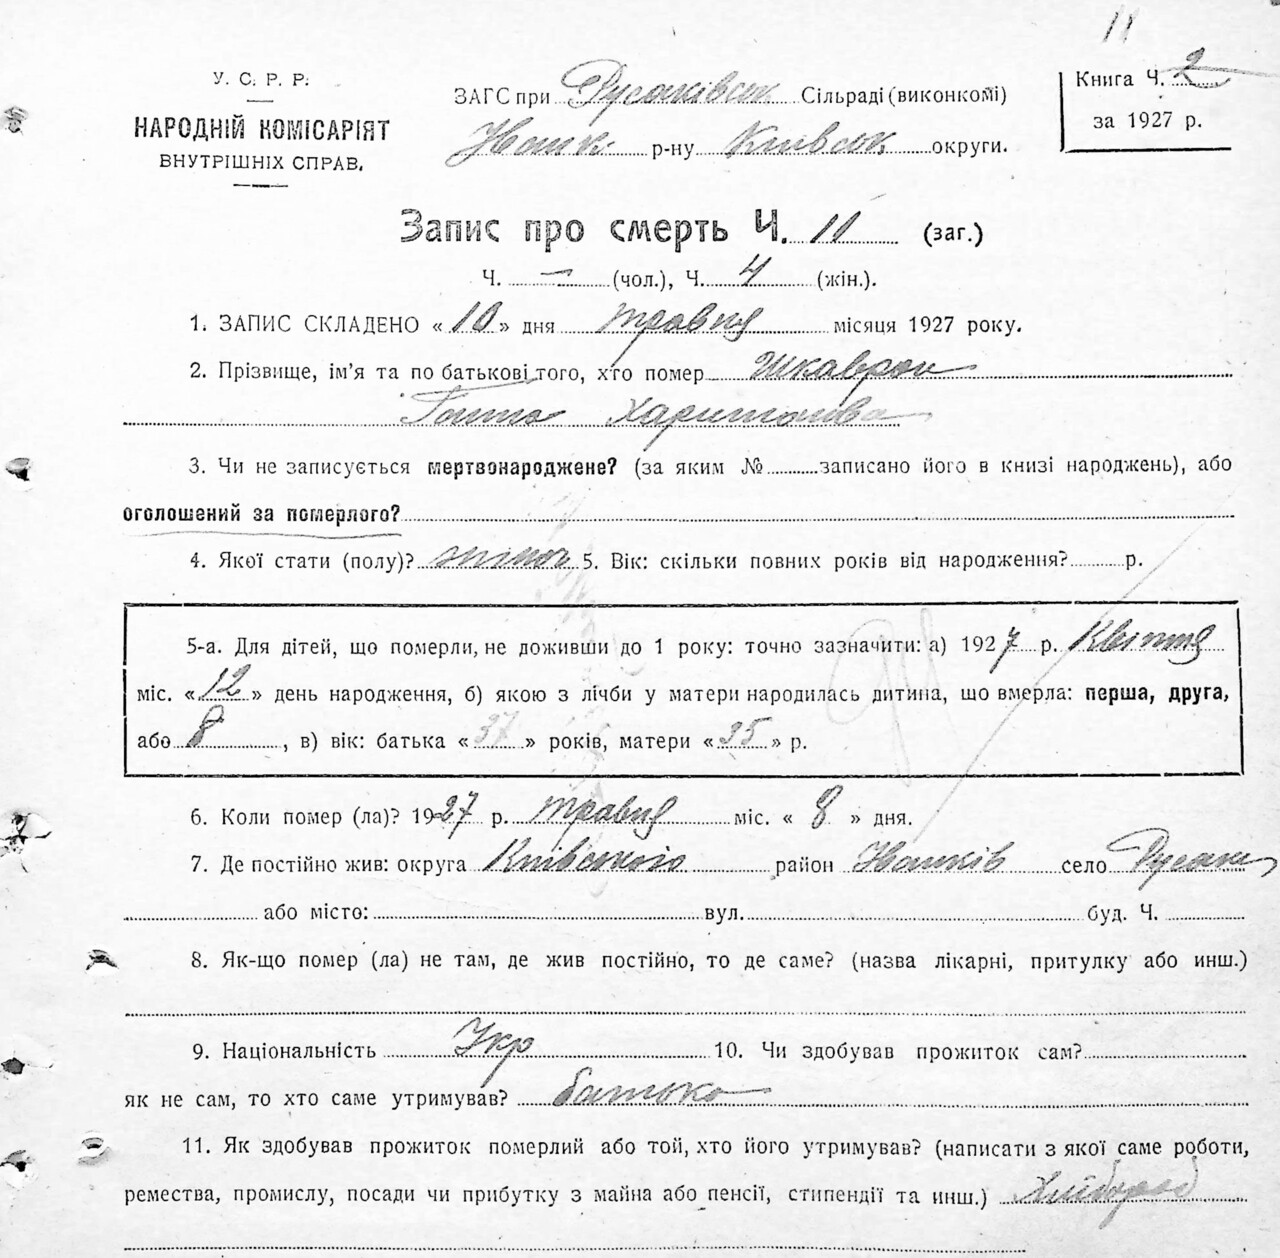 11
У. С. Р. Р.
НАРОДНІЙ КОМІСАРІЯТ
ВНУТРІШНІХ СПРАВ.
ЗАГС при Русанівськ Сільраді (виконкомі)
р-ну Київськ округи.
Книга Ч. 2
за 1927 р.
Запис про смерть Ч. 11 (заг.)
Ч. — (чол.), Ч. 4 (жін.).
1. ЗАПИС СКЛАДЕНО «10» дня травня місяця 1927 року.
2. Прізвище, ім'я та по батькові того, хто помер Шкаврон
Ганна Харитонівна
3. Чи не записується мертвонароджене? (за яким № записано його в книзі народжень), або
оголошений за померлого?
4. Якої стати (полу)? жіноч 5. Вік: скільки повних років від народження? р.
5-а. Для дітей, що померли, не доживши до 1 року: точно зазначити: а) 1927 р. Квітня
міс. «12» день народження, б) якою з лічби у матери народилась дитина, що вмерла: перша, друга,
або 8, в) вік: батька «37» років, матери «35» р.
6. Коли помер (ла)? 1927 р. травня міс. «8» дня.
7. Де постійно жив: округа Київського район село Русанів
або місто: вул. буд. Ч.
8. Як-що помер (ла) не там, де жив постійно, то де саме? (назва лікарні, притулку або инш.)
9. Національність Укр 10. Чи здобував прожиток сам?
як не сам, то хто саме утримував? батько
11. Як здобував прожиток померлий або той, хто його утримував? (написати з якої саме роботи,
ремества, промислу, посади чи прибутку з майна або пенсії, стипендії та инш.) Хлібороб